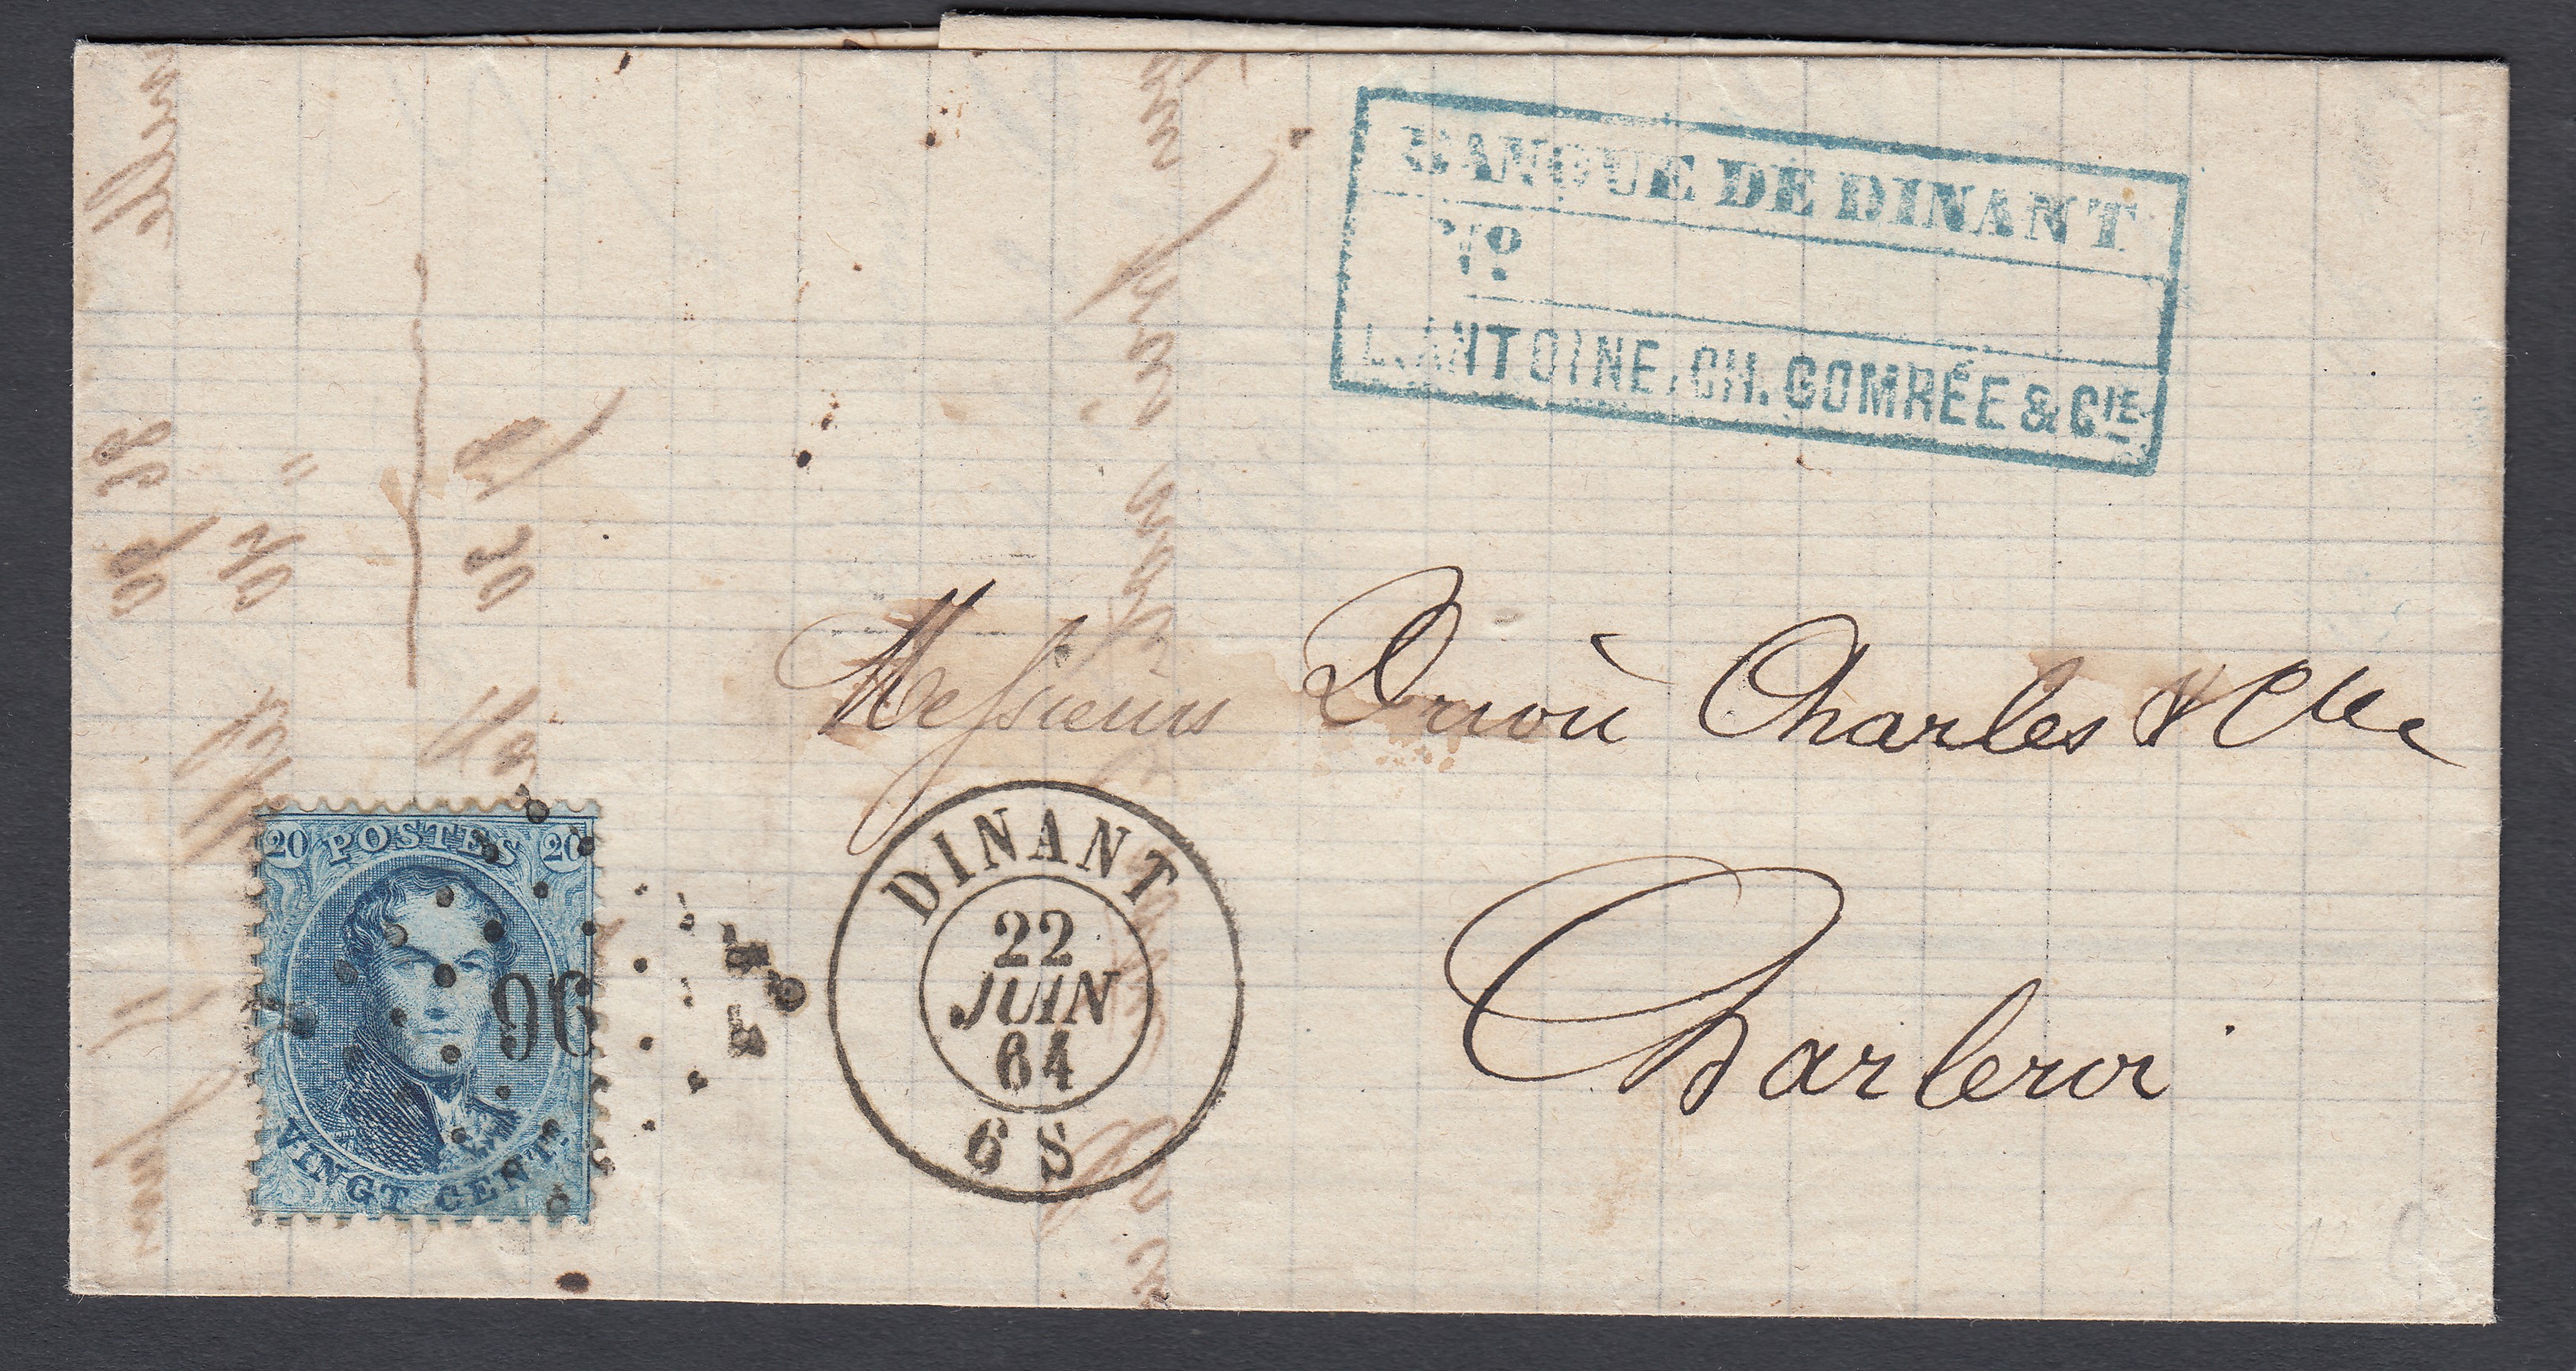 BANQUE DE DINANT
Nº
L. ANTOINE, CH. GOMRÉE & CIE
Messieurs Drion Charles & Cie
Charleroi
DINANT
22
JUIN
64
6 S
20 POSTES 20
96
VINGT CENT.